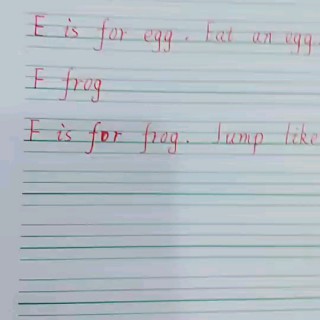 E is for egg. Eat an egg.
F frog
F is for frog. Jump like